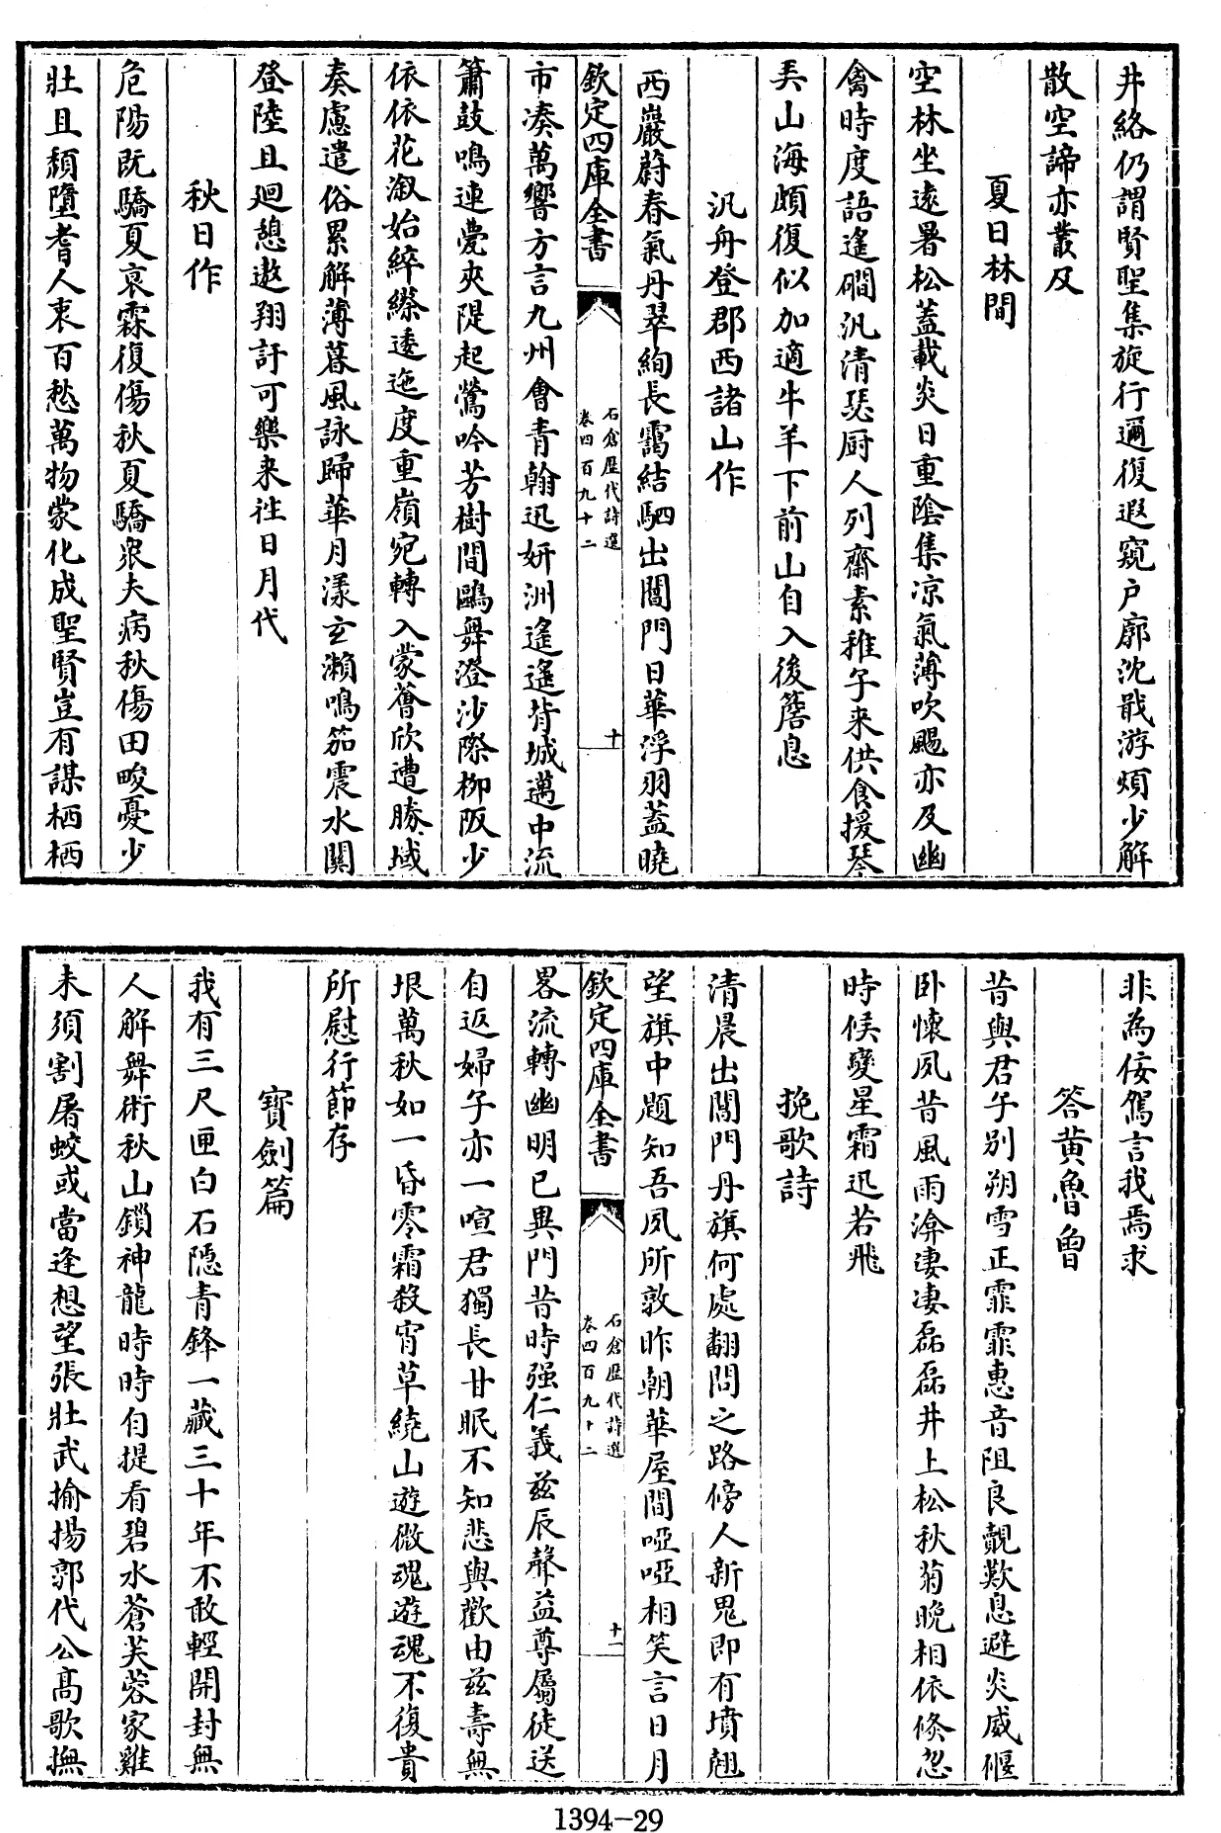 井絡仍謂賢聖集旋行邇復遐窺户廓沈戢游煩少解
散空諦亦叢及
夏日林間
空林坐遠暑松蓋載炎日重陰集凉氣薄吹颺亦及幽
禽時度語遙磵汎清瑟厨人列齋素稚子来供食援琴
美山海頗復似加適牛羊下前山自入後簷息
汎舟登郡西諸山作
西巖蔚春氣丹翠絢長霭結駟出閶門日華浮羽蓋曉
欽定四庫全書
石倉歴代詩選
卷四百九十二
十
市湊萬響方言九州會青翰迅妍洲遙遙背城邁中流
簫鼓鳴連甍夾隄起鶯吟芳樹間鷗舞澄沙際柳阪少
依依花溆始綷縩逶迤度重嶺宛轉入蒙薈欣遭勝域
奏慮遣俗累解薄暮風詠歸華月漾玄瀬鳴笳震水關
登陸且廻憩遨翔訏可樂来往日月代
秋日作
危陽既驕夏哀霖復傷秋夏驕衆夫病秋傷田畯憂少
壯且頹墮耆人衷百愁萬物蒙化成聖賢豈有謀栖栖
非為佞駕言我焉求
答黄魯曾
昔與君子别朔雪正霏霏惠音阻良覿歎息避炎威偃
卧懷夙昔風雨渰淒淒磊磊井上松秋菊晚相依倏忽
時候變星霜迅若飛
挽歌詩
清晨出閶門丹旗何處翻問之路傍人新鬼即有墳翹
望旗中題知吾夙所敦昨朝華屋間啞啞相笑言日月
欽定四庫全書
石倉歴代詩選
卷四百九十二
十一
畧流轉幽明已異門昔時强仁義兹辰聲益尊屬徒送
自返婦子亦一喧君獨長甘眠不知悲與歡由兹壽無
垠萬秋如一昏零霜殺宵草繞山遊微魂遊魂不復貴
所慰行節存
寳劍篇
我有三尺匣白石隱青鋒一藏三十年不敢輕開封無
人解舞術秋山鎖神龍時時自提看碧水蒼芙蓉家雞
未須割屠蛟或當逢想望張壯武揄揚郭代公髙歌撫
1394-29